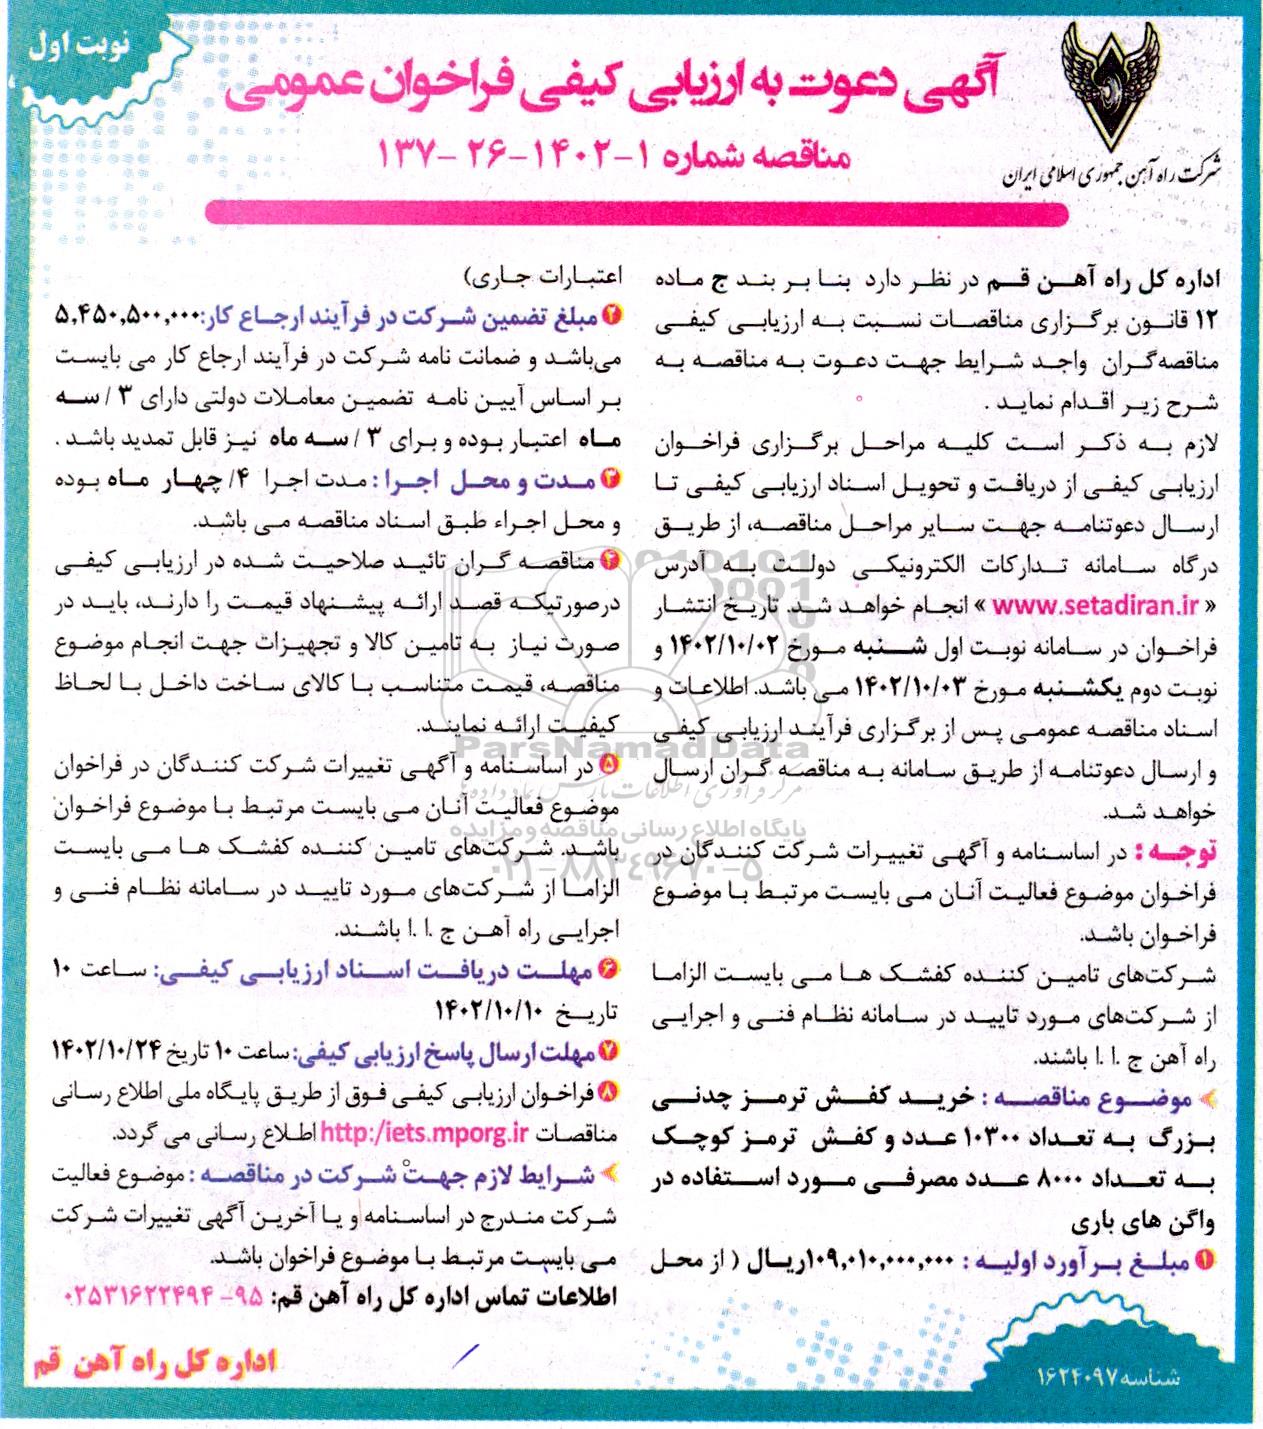 نوبت اول
آگهی دعوت به ارزیابی کیفی فراخوان عمومی
مناقصه شماره ۱-۱۴۰۲-۲۶ -۱۳۷
شرکت راه آهن جمهوری اسلامی ایران
اداره کل راه آهن قم در نظر دارد بنا بر بند ج ماده
۱۲ قانون برگزاری مناقصات نسبت به ارزیابی کیفی
مناقصه‌گران واجد شرایط جهت دعوت به مناقصه به
شرح زیر اقدام نماید .
لازم به ذکر است کلیه مراحل برگزاری فراخوان
ارزیابی کیفی از دریافت و تحویل اسناد ارزیابی کیفی تا
ارسال دعوتنامه جهت سایر مراحل مناقصه، از طریق
درگاه سامانه تدارکات الکترونیکی دولت به آدرس
« www.setadiran.ir » انجام خواهد شد. تاریخ انتشار
فراخوان در سامانه نوبت اول شنبه مورخ ۱۴۰۲/۱۰/۰۲ و
نوبت دوم یکشنبه مورخ ۱۴۰۲/۱۰/۰۳ می باشد. اطلاعات و
اسناد مناقصه عمومی پس از برگزاری فرآیند ارزیابی کیفی
و ارسال دعوتنامه از طریق سامانه به مناقصه گران ارسال
خواهد شد.
توجه : در اساسنامه و آگهی تغییرات شرکت کنندگان در
فراخوان موضوع فعالیت آنان می بایست مرتبط با موضوع
فراخوان باشد.
شرکت‌های تامین کننده کفشک ها می بایست الزاما
از شرکت‌های مورد تایید در سامانه نظام فنی و اجرایی
راه آهن ج .ا .ا باشند.
موضوع مناقصه : خرید کفش ترمز چدنی
بزرگ به تعداد ۱۰۳۰۰ عدد و کفش ترمز کوچک
به تعداد ۸۰۰۰ عدد مصرفی مورد استفاده در
واگن های باری
۱ مبلغ برآورد اولیه : ۱۰۹,۰۱۰,۰۰۰,۰۰۰ریال ( از محل
اعتبارات جاری)
۲ مبلغ تضمین شرکت در فرآیند ارجاع کار:۵,۴۵۰,۵۰۰,۰۰۰
می‌باشد و ضمانت نامه شرکت در فرآیند ارجاع کار می بایست
بر اساس آیین نامه تضمین معاملات دولتی دارای ۳ / سه
ماه اعتبار بوده و برای ۳ / سه ماه نیز قابل تمدید باشد .
۳ مدت و محل اجرا : مدت اجرا ۴/ چهار ماه بوده
و محل اجراء طبق اسناد مناقصه می باشد.
۴ مناقصه گران تائید صلاحیت شده در ارزیابی کیفی
درصورتیکه قصد ارائه پیشنهاد قیمت را دارند، باید در
صورت نیاز به تامین کالا و تجهیزات جهت انجام موضوع
مناقصه، قیمت متناسب با کالای ساخت داخل با لحاظ
کیفیت ارائه نمایند.
۵ در اساسنامه و آگهی تغییرات شرکت کنندگان در فراخوان
موضوع فعالیت آنان می بایست مرتبط با موضوع فراخوان
باشد. شرکت‌های تامین کننده کفشک ها می بایست
الزاما از شرکت‌های مورد تایید در سامانه نظام فنی و
اجرایی راه آهن ج .ا .ا باشند.
۶ مهلت دریافت اسناد ارزیابی کیفی: ساعت ۱۰
تاریخ ۱۴۰۲/۱۰/۱۰
۷ مهلت ارسال پاسخ ارزیابی کیفی: ساعت ۱۰ تاریخ ۱۴۰۲/۱۰/۲۴
۸ فراخوان ارزیابی کیفی فوق از طریق پایگاه ملی اطلاع رسانی
مناقصات http:/iets.mporg.ir اطلاع رسانی می گردد.
شرایط لازم جهت شرکت در مناقصه : موضوع فعالیت
شرکت مندرج در اساسنامه و یا آخرین آگهی تغییرات شرکت
می بایست مرتبط با موضوع فراخوان باشد.
اطلاعات تماس اداره کل راه آهن قم: ۹۵- ۰۲۵۳۱۶۲۲۴۹۴
اداره کل راه آهن قم
شناسه ۱۶۲۴۰۹۷
ParsNamadData
مرکز فرآوری اطلاعات پارس نماد داده ها
پایگاه اطلاع رسانی مناقصه و مزایده
۰۲۱-۸۸۳۴۹۶۷۰-۵